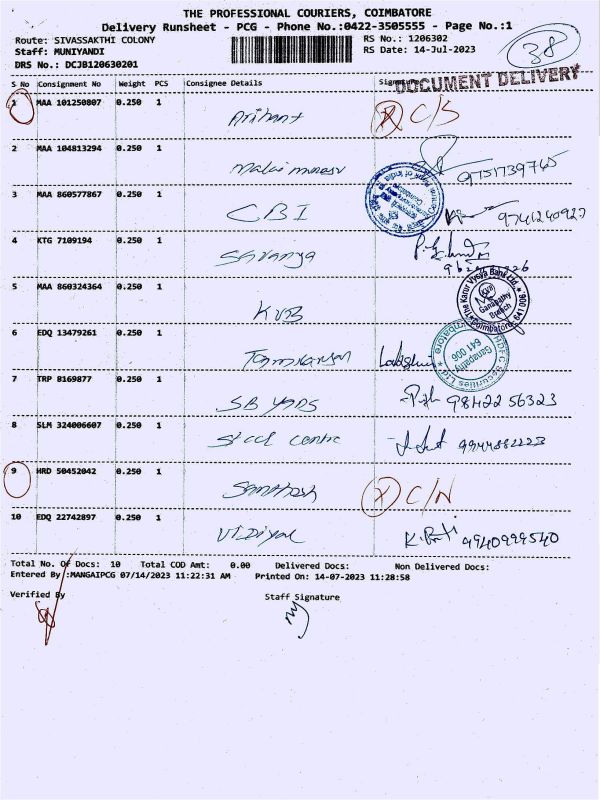 THE PROFESSIONAL COURIERS, COIMBATORE
Delivery Runsheet - PCG - Phone No.:0422-3505555 - Page No.:1
Route: SIVASSAKTHI COLONY RS No.: 1206302
Staff: MUNIYANDI RS Date: 14-Jul-2023
DRS No.: DCJB120630201
38
DOCUMENT DELIVERY
S No Consignment No Weight PCS Consignee Details Signature
1 MAA 101250807 0.250 1 Arihant C/S
2 MAA 104813294 0.250 1 Malai murasu 9751739765
3 MAA 860577867 0.250 1 CBI 9741240927
4 KTG 7109194 0.250 1 Saranya
5 MAA 860324364 0.250 1 KVB
The Karur Vysya Bank Ltd.
KVB
Ganapathy
Branch
Coimbatore 641 006
6 EDQ 13479261 0.250 1
HDFC Securities Ltd
Ganapathy
641 006
Coimbatore
7 TRP 8169877 0.250 1 SB YADS 98422 56323
8 SLM 324006607 0.250 1 Steel Centre 9944882223
9 HRD 50452042 0.250 1 Santhosh C/N
10 EDQ 22742897 0.250 1 VIDIYAL 9940999540
Total No. Of Docs: 10 Total COD Amt: 0.00 Delivered Docs: Non Delivered Docs:
Entered By :MANGAIPCG 07/14/2023 11:22:31 AM Printed On: 14-07-2023 11:28:58
Verified By Staff Signature